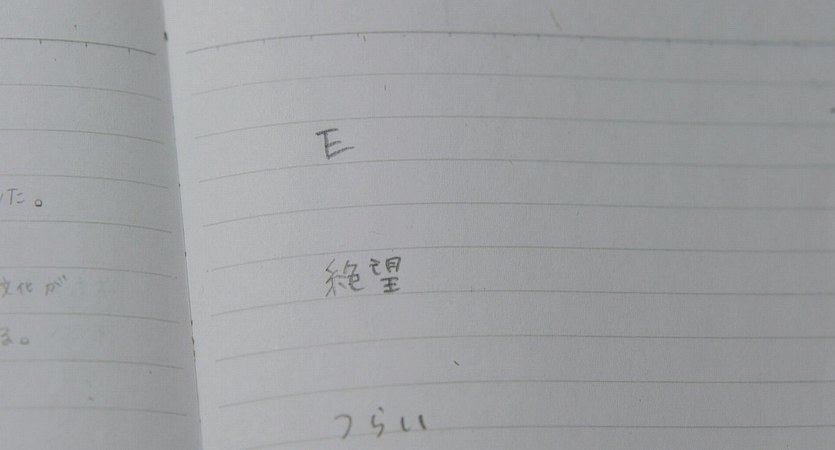 した。
文化が
る。
E
絶望
つらい